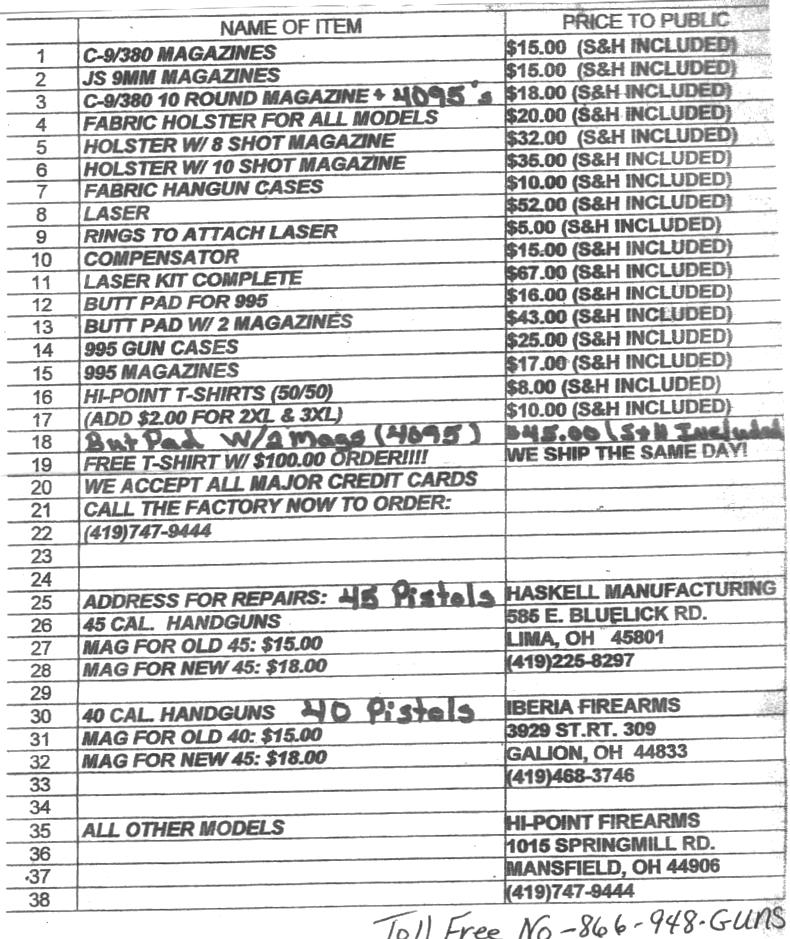 NAME OF ITEM PRICE TO PUBLIC
1 C-9/380 MAGAZINES $15.00 (S&H INCLUDED)
2 JS 9MM MAGAZINES $15.00 (S&H INCLUDED)
3 C-9/380 10 ROUND MAGAZINE + 4095's $18.00 (S&H INCLUDED)
4 FABRIC HOLSTER FOR ALL MODELS $20.00 (S&H INCLUDED)
5 HOLSTER W/ 8 SHOT MAGAZINE $32.00 (S&H INCLUDED)
6 HOLSTER W/ 10 SHOT MAGAZINE $35.00 (S&H INCLUDED)
7 FABRIC HANGUN CASES $10.00 (S&H INCLUDED)
8 LASER $52.00 (S&H INCLUDED)
9 RINGS TO ATTACH LASER $5.00 (S&H INCLUDED)
10 COMPENSATOR $15.00 (S&H INCLUDED)
11 LASER KIT COMPLETE $67.00 (S&H INCLUDED)
12 BUTT PAD FOR 995 $16.00 (S&H INCLUDED)
13 BUTT PAD W/ 2 MAGAZINES $43.00 (S&H INCLUDED)
14 995 GUN CASES $25.00 (S&H INCLUDED)
15 995 MAGAZINES $17.00 (S&H INCLUDED)
16 HI-POINT T-SHIRTS (50/50) $8.00 (S&H INCLUDED)
17 (ADD $2.00 FOR 2XL & 3XL) $10.00 (S&H INCLUDED)
18 But Pad W/2 Mags (4095) $45.00 (S+H Included
19 FREE T-SHIRT W/ $100.00 ORDER!!!! WE SHIP THE SAME DAY!
20 WE ACCEPT ALL MAJOR CREDIT CARDS
21 CALL THE FACTORY NOW TO ORDER:
22 (419)747-9444
23
24
25 ADDRESS FOR REPAIRS: 45 Pistols HASKELL MANUFACTURING
26 45 CAL. HANDGUNS 585 E. BLUELICK RD.
27 MAG FOR OLD 45: $15.00 LIMA, OH 45801
28 MAG FOR NEW 45: $18.00 (419)225-8297
29
30 40 CAL. HANDGUNS 40 Pistols IBERIA FIREARMS
31 MAG FOR OLD 40: $15.00 3929 ST.RT. 309
32 MAG FOR NEW 45: $18.00 GALION, OH 44833
33 (419)468-3746
34
35 ALL OTHER MODELS HI-POINT FIREARMS
36 1015 SPRINGMILL RD.
37 MANSFIELD, OH 44906
38 (419)747-9444
Toll Free No -866-948-GUNS